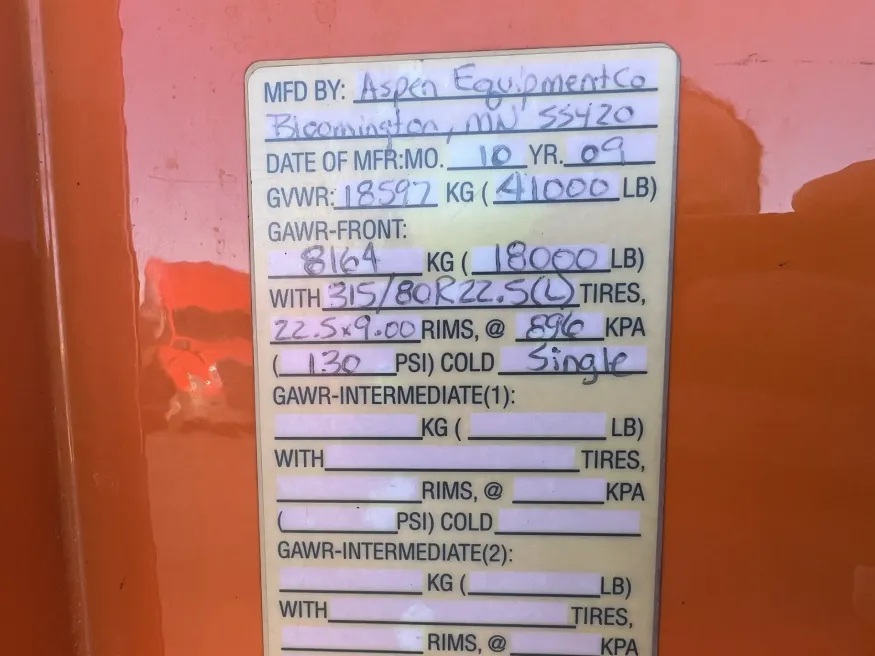 MFD BY: Aspen Equipment Co
Bloomington, MN 55420
DATE OF MFR:MO. 10 YR. 09
GVWR: 18597 KG ( 41000 LB)
GAWR-FRONT:
8164 KG ( 18000 LB)
WITH 315/80R22.5(L) TIRES,
22.5x9.00 RIMS, @ 896 KPA
( 130 PSI) COLD Single
GAWR-INTERMEDIATE(1):
KG ( LB)
WITH TIRES,
RIMS, @ KPA
( PSI) COLD
GAWR-INTERMEDIATE(2):
KG ( LB)
WITH TIRES,
RIMS, @ KPA